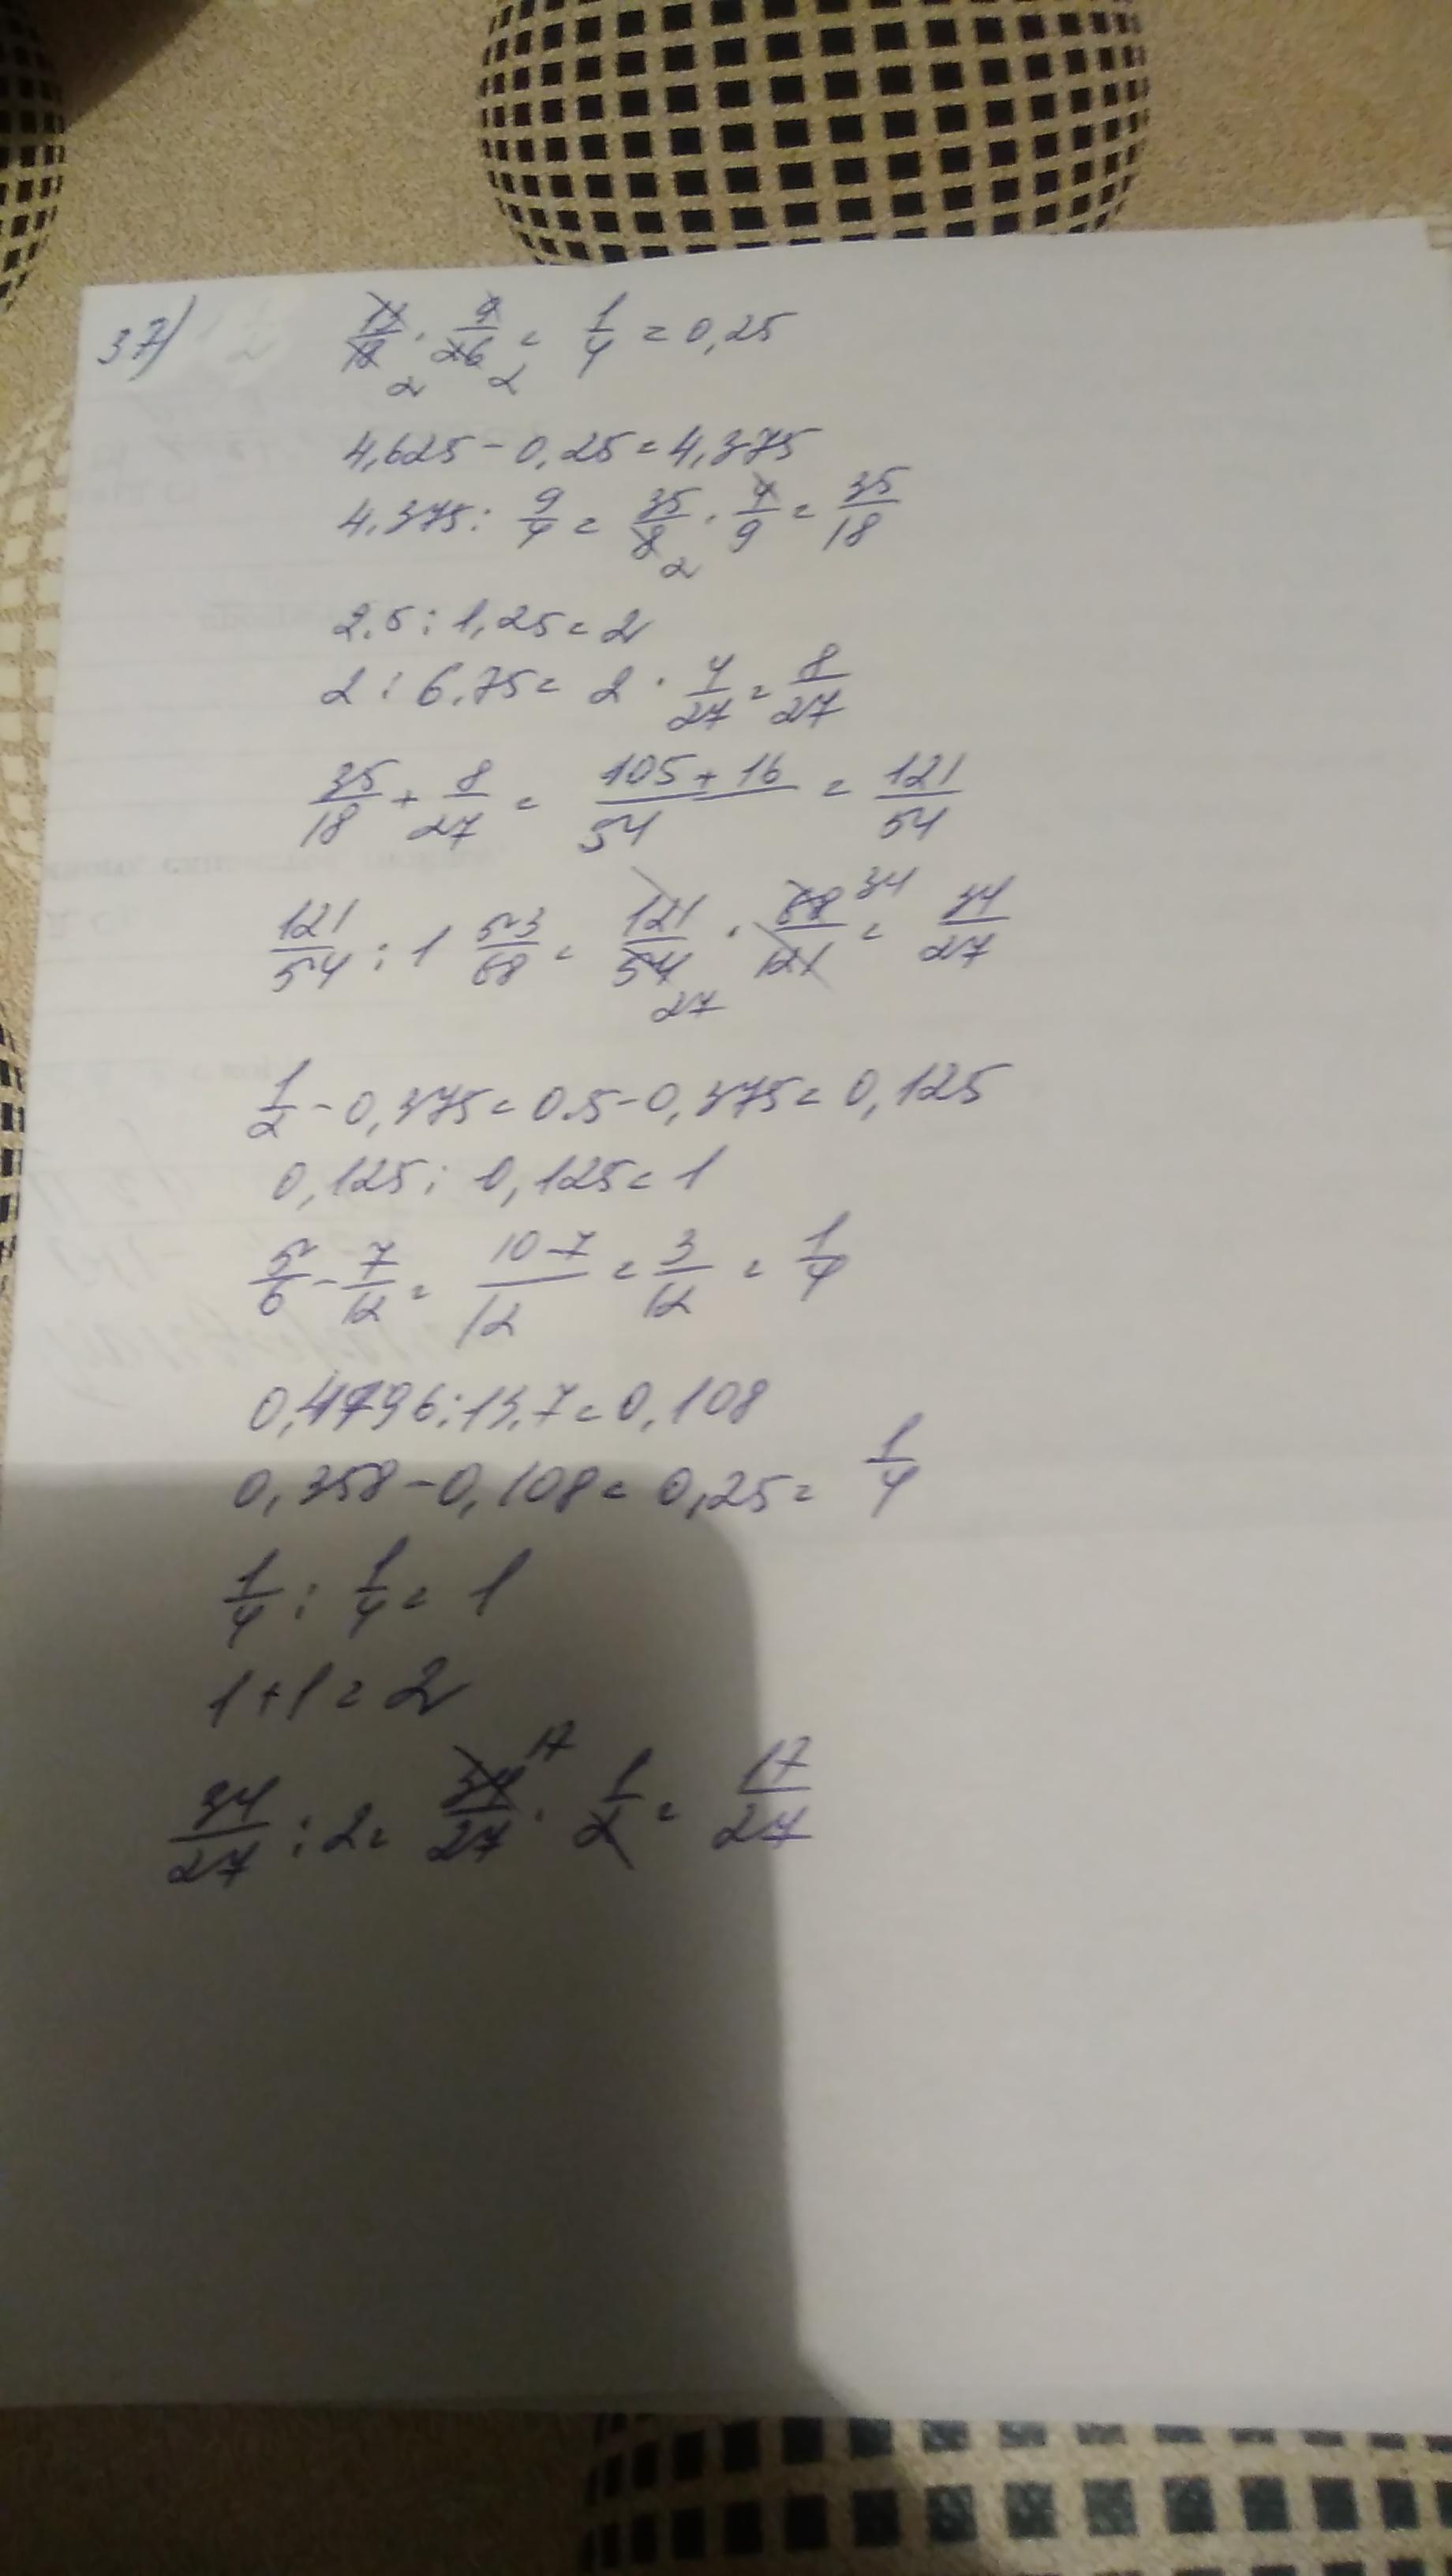 37) 13/18 · 9/26 = 1/4 = 0,25
2 2
4,625 - 0,25 = 4,375
4,375 : 9/4 = 35/8 · 4/9 = 35/18
2
2,5 : 1,25 = 2
2 : 6,75 = 2 · 4/27 = 8/27
35/18 + 8/27 = 105 + 16/54 = 121/54
121/54 : 1 53/68 = 121/54 · 68/121 34 = 34/27
27
1/2 - 0,375 = 0.5 - 0,375 = 0,125
0,125 : 0,125 = 1
5/6 - 7/12 = 10-7/12 = 3/12 = 1/4
0,4796 : 13,7 = 0,108
0,358 - 0,108 = 0,25 = 1/4
1/4 : 1/4 = 1
1 + 1 = 2
34/27 : 2 = 34/27 17 · 1/2 = 17/27